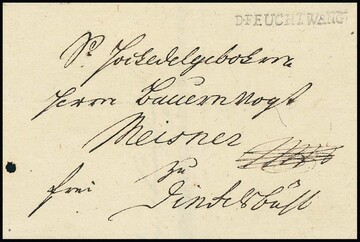 D.FEUCHTWANG.
Sr Hochedelgebohrn
Herrn Bauern Vogt
Meisner
zu
frei Dinkelsbühl